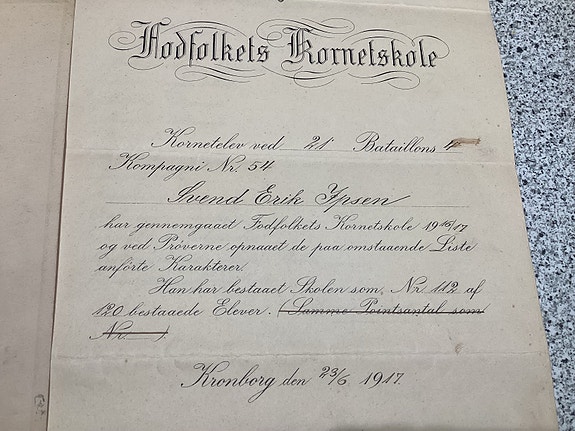 Fodfolkets Kornetskole
Kornetelev ved 21 Bataillons 4
Kompagni Nr. 54
Svend Erik Ipsen
har gennemgaaet Fodfolkets Kornetskole 1916/17
og ved Prøverne opnaaet de paa omstaaende Liste
anførte Karakterer.
Han har bestaaet Skolen som, Nr. 112 af
120 bestaaede Elever. (Samme Pointsantal som
Nr. )
Kronborg den 23/6 1917.